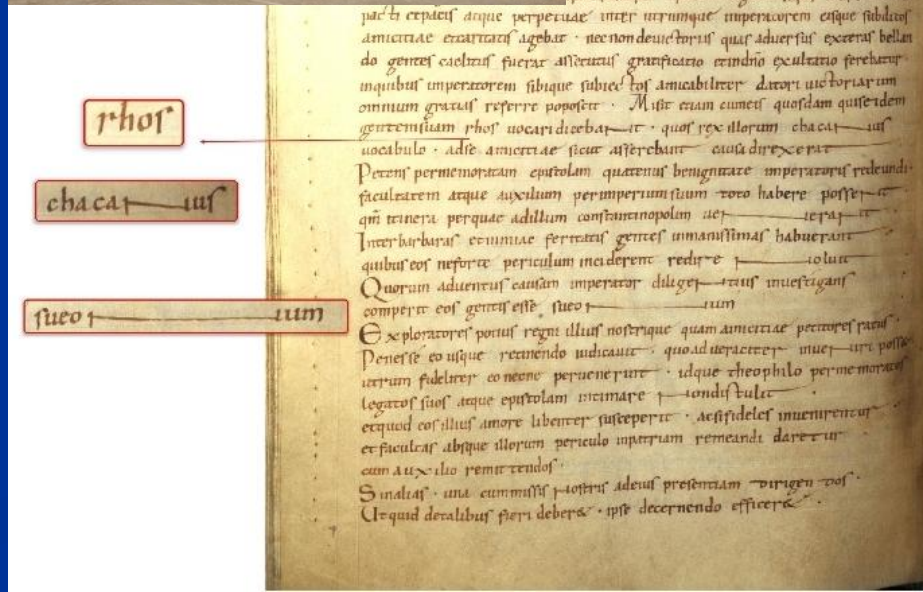 rhos
chacanus
sueonum
pacti et pacis atque perpetuae inter utrumque imperatorem eisque subditos
amicitiae et caritatis agebat · nec non de victoriis quas adversus exteras bellan
do gentes caelitus fuerat assecutus gratificatio et in dno exultatio ferebatur
in quibus imperatorem sibique subiectos amicabiliter datori victoriarum
omnium gratias referre poposcit · Misit etiam cum eis quosdam qui se id est
gentem suam rhos vocari dicebant · quos rex illorum chacanus
vocabulo · ad se amicitiae sicut asserebant causa direxerat
Petens per memoratam epistolam quatenus benignitate imperatoris redeundi
facultatem atque auxilium per imperium suum toto habere possent
qm itinera per quae ad illum constantinopolim venerant
Inter barbaras et nimiae feritatis gentes inmanissimas habuerant
quibus eos ne forte periculum inciderent redire noluit
Quorum adventus causam imperator diligentius investigans
comperit eos gentis esse sueonum
Exploratores potius regni illius nostrique quam amicitiae petitores ratus
Penes se eo usque retinendo iudicavit · quo ad veraciter inveniri posset
utrum fideliter eo necne pervenerint · idque theophilo per memoratos
legatos suos atque epistolam intimare non distulit
et quod eos illius amore libenter susceperit · ac si fideles invenirentur
et facultas absque illorum periculo in patriam remeandi daretur
cum auxilio remittendos ·
Sin alias · una cum missis nostris ad eius presentiam dirigendos ·
Ut quid de talibus fieri deber& · ipse decernendo efficer& ·